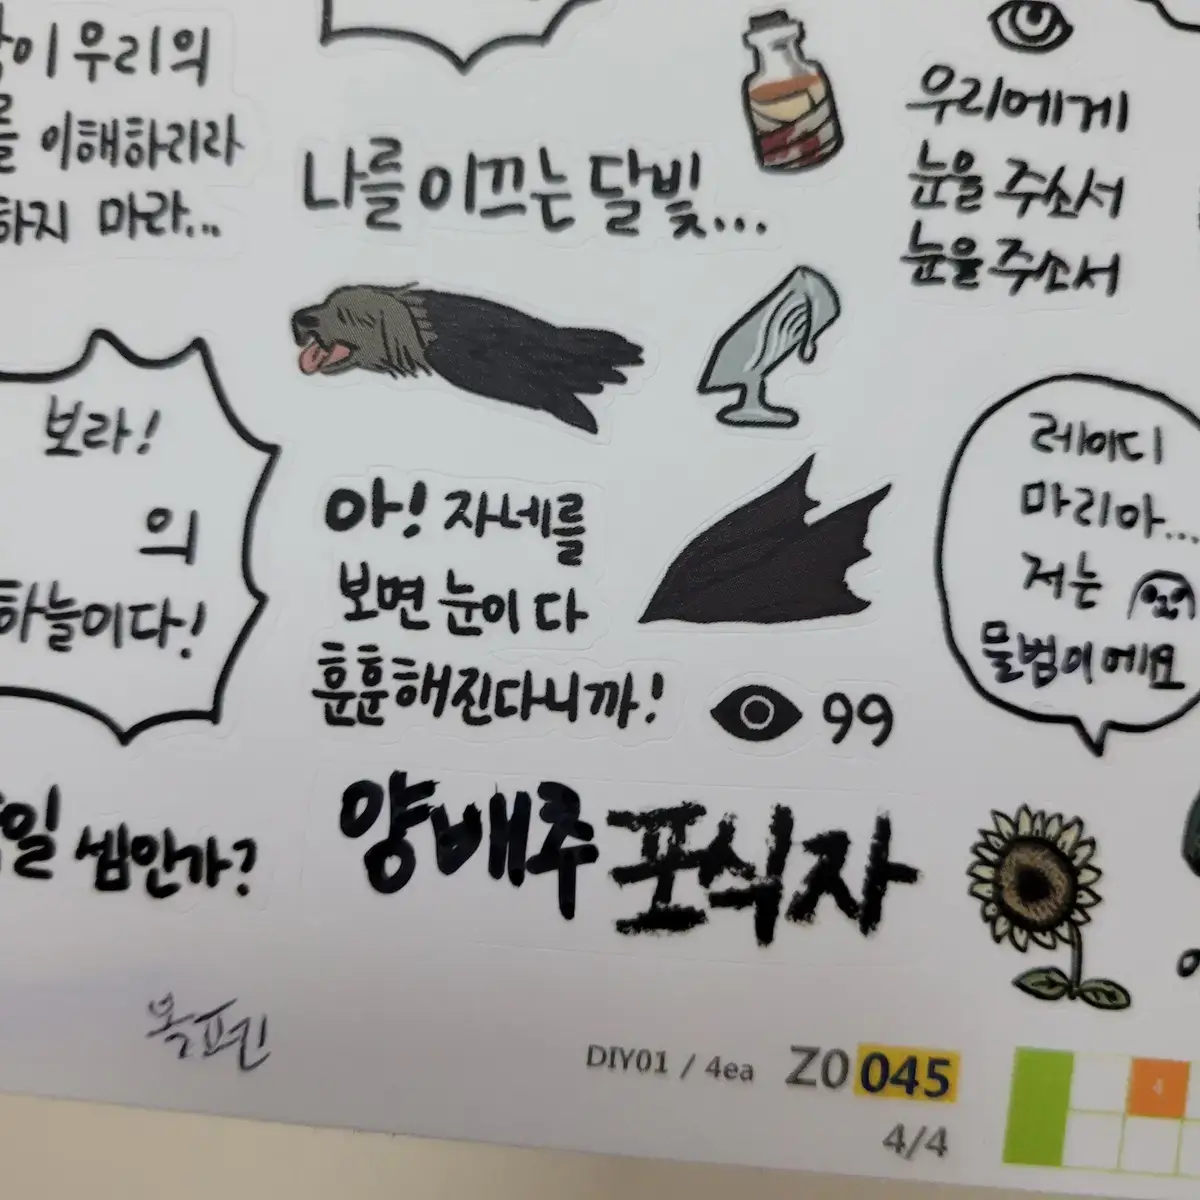 우리의
이해하리라
하지 마라...
나를 이끄는 달빛...
우리에게
눈을 주소서
눈을 주소서
보라!
의
하늘이다!
아! 자네를
보면 눈이 다
훈훈해진다니까!
99
레이디
마리아...
저는
물범이에요
일 셈인가?
양배추 포식자
DIY01 / 4ea ZO 045
4/4
4